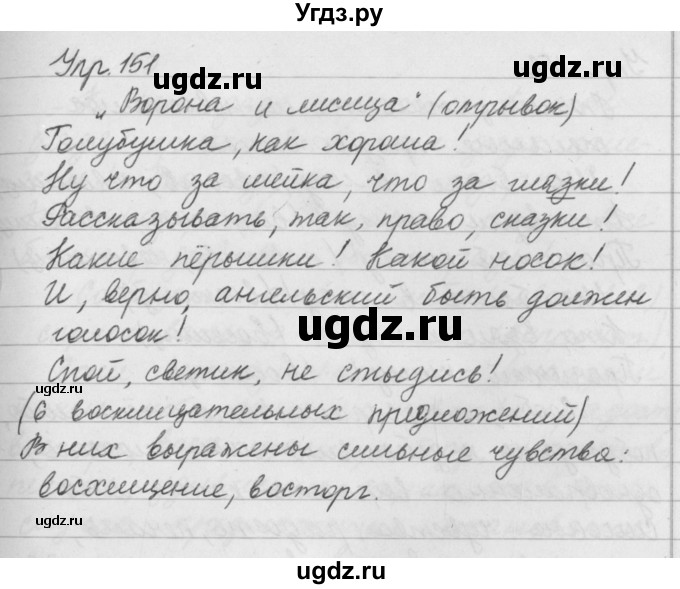 Угдз.ру
Упр. 151
ugdz.ru
ugdz.ru
„Ворона и лисица“ (отрывок)
Голубушка, как хороша!
Ну что за шейка, что за глазки!
Рассказывать, так, право, сказки!
Какие пёрышки! Какой носок!
И, верно, ангельский быть должен
голосок!
ugdz.ru
Спой, светик, не стыдись!
ugdz.ru
(6 восклицательных предложений)
В них выражены сильные чувства:
восхищение, восторг.
ugdz.ru
ugdz.ru